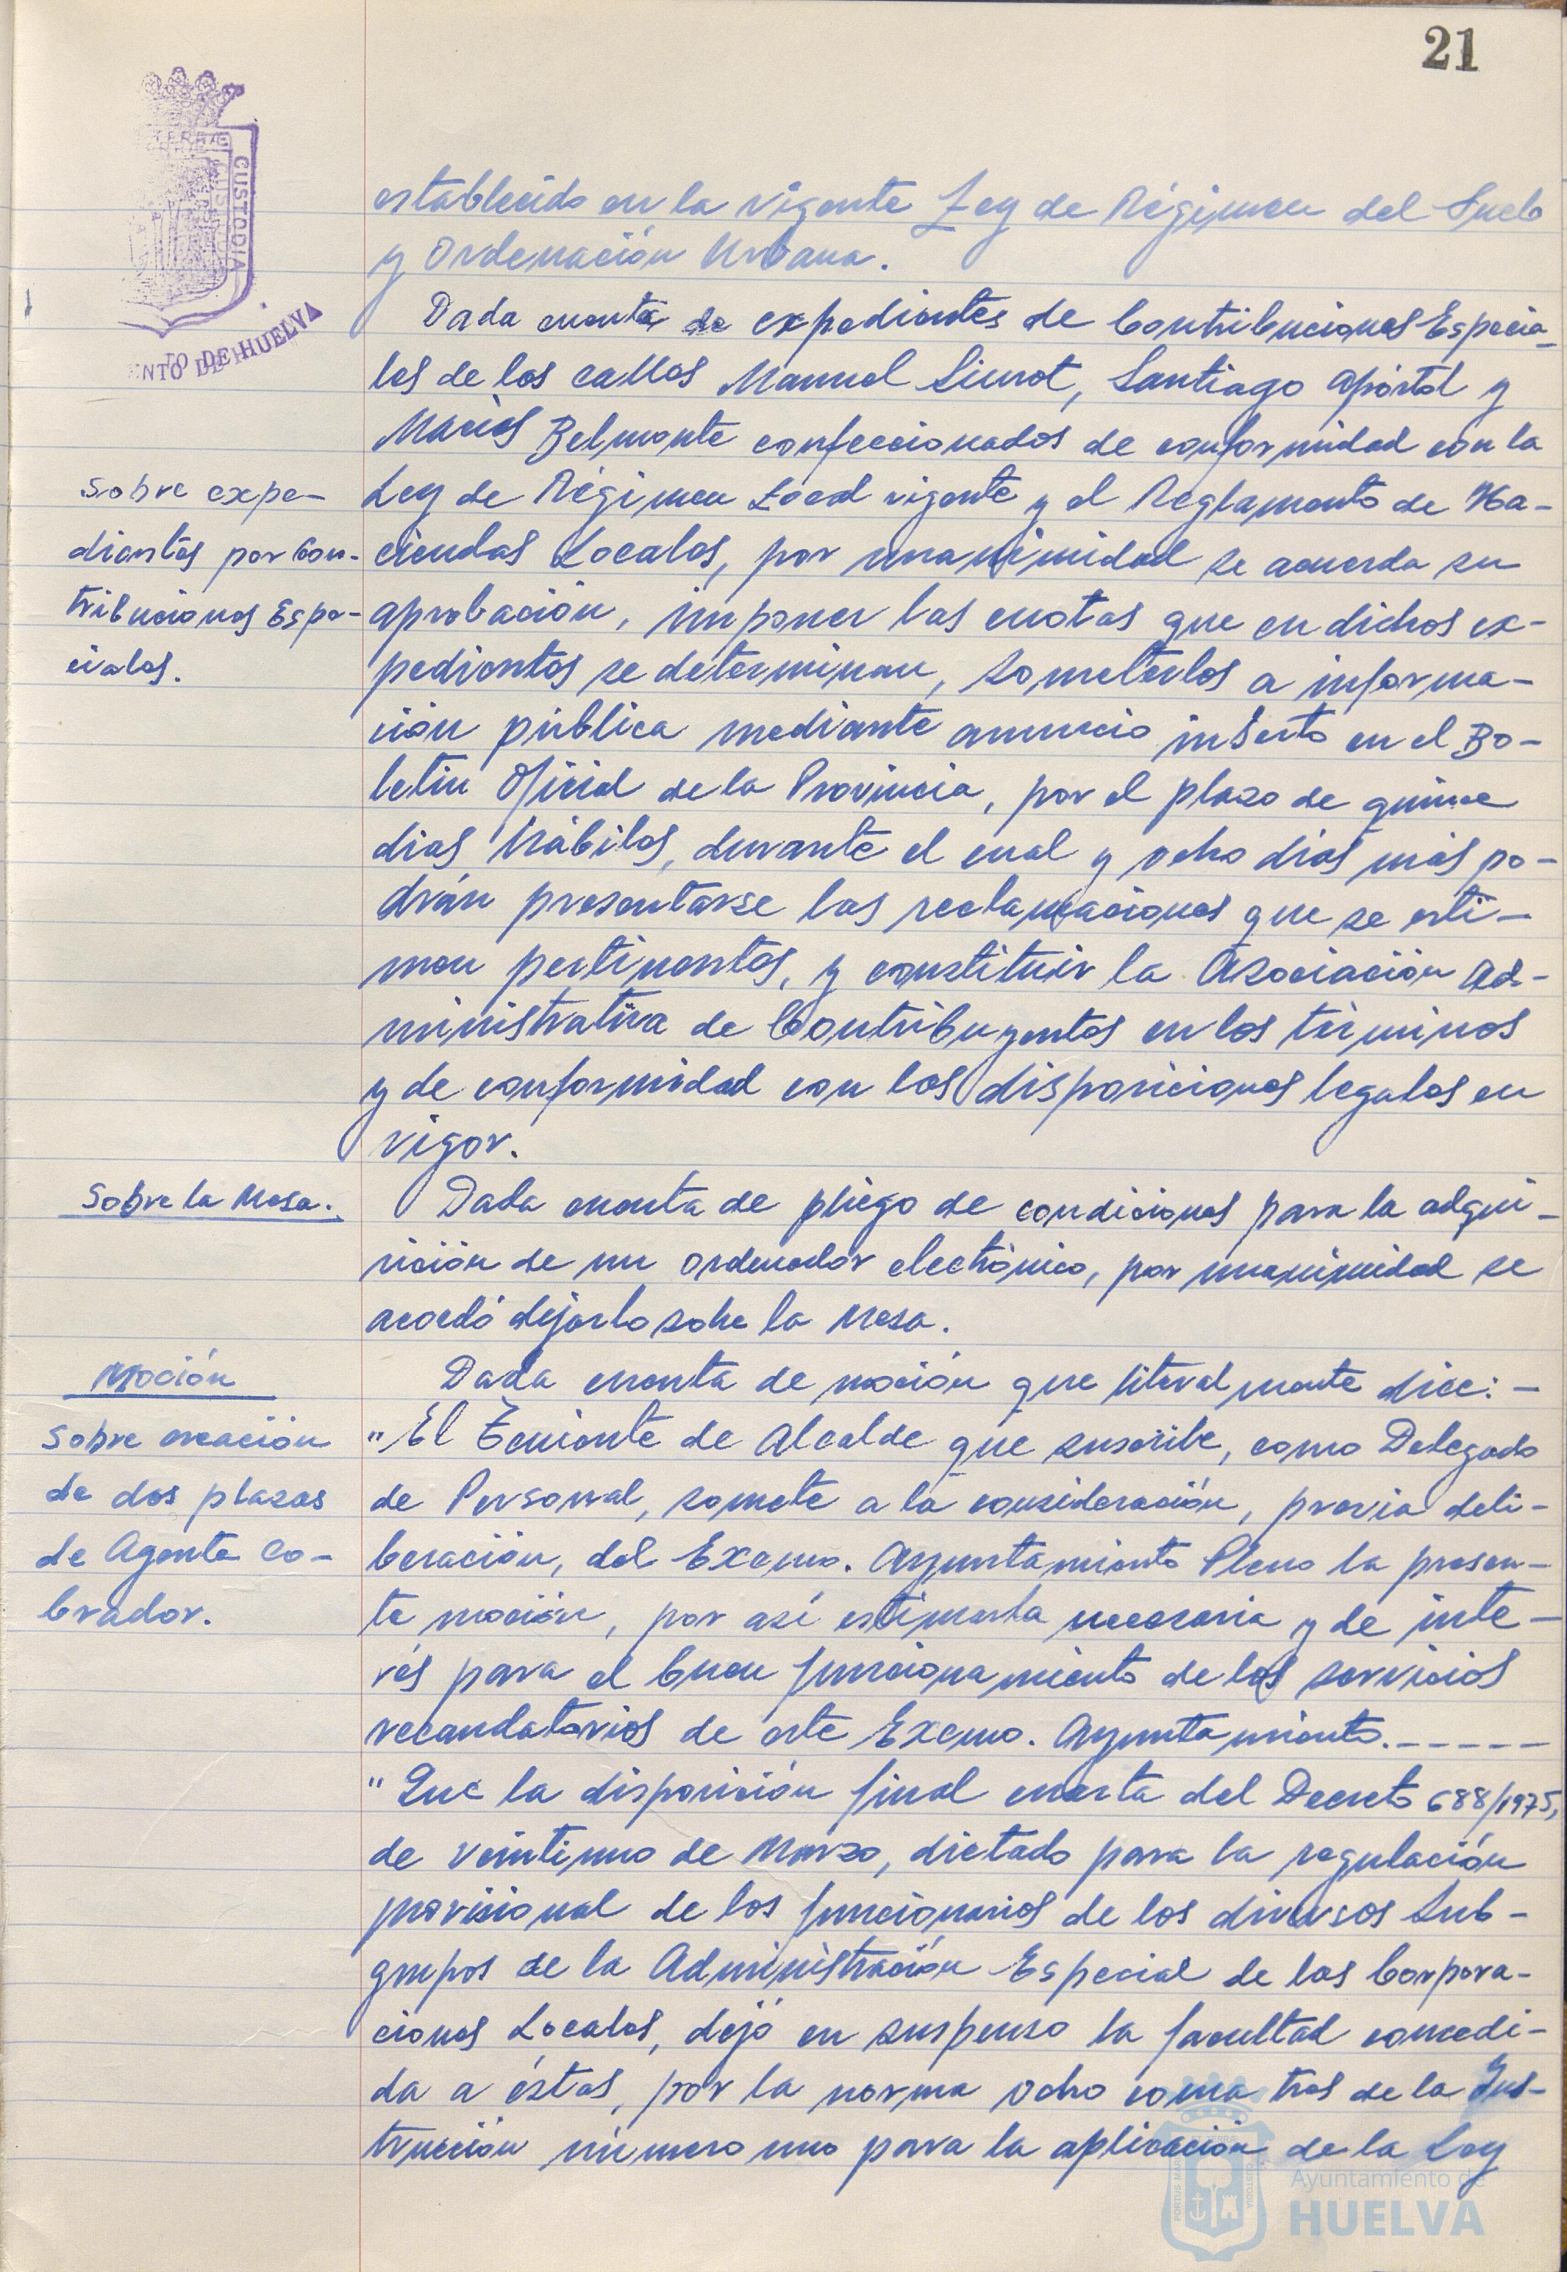 21
TERRAE
CUSTODIA
NTO DE HUELVA
establecido en la vigente Ley de Régimen del Suelo
y Ordenación Urbana.
Dada cuenta de expedientes de Contribuciones Especia-
les de las calles Manuel Siurot, Santiago Apóstol y
Macías Belmonte confeccionados de conformidad con la
Sobre expe-
Ley de Régimen Local vigente y el Reglamento de Ha-
dientes por Con-
ciendas Locales, por unanimidad se acuerda su
tribuciones Espe-
aprobación, imponer las cuotas que en dichos ex-
ciales.
pedientes se determinan, someterlos a informa-
ción pública mediante anuncio inserto en el Bo-
letin Oficial de la Provincia, por el plazo de quince
dias hábiles, durante el cual y ocho dias más po-
drán presentarse las reclamaciones que se esti-
men pertinentes, y constituir la Asociación Ad-
ministrativa de Contribuyentes en los términos
y de conformidad con las disposiciones legales en
vigor.
Sobre la Mesa.
Dada cuenta de pliego de condiciones para la adqui-
sición de un ordenador electrónico, por unanimidad se
acordó dejarlo sobre la Mesa.
Moción
Dada cuenta de moción que literalmente dice: -
Sobre creación
"El Teniente de Alcalde que suscribe, como Delegado
de dos plazas
de Personal, somete a la consideración, previa deli-
de Agente Co-
beración, del Excmo. Ayuntamiento Pleno la presen-
brador.
te moción, por así estimarla necesaria y de inte-
rés para el buen funcionamiento de los servicios
recaudatorios de este Excmo. Ayuntamiento.-----
"Que la disposición final cuarta del Decreto 688/1975,
de veintiuno de Marzo, dictado para la regulación
provisional de los funcionarios de los diversos Sub-
grupos de la Administración Especial de las Corpora-
ciones Locales, dejó en suspenso la facultad concedi-
da a éstas, por la norma ocho coma tres de la Ins-
trucción número uno para la aplicación de la Ley
Ayuntamiento de
HUELVA